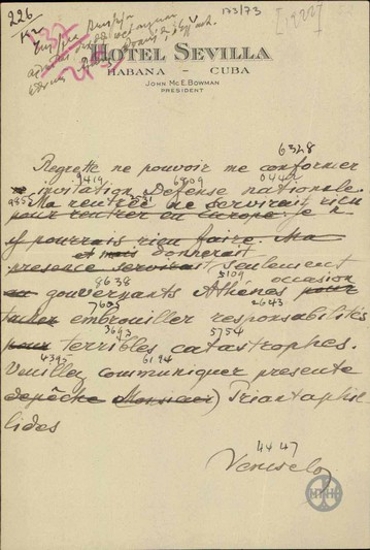 226
173/73
[1922]
HOTEL SEVILLA
HABANA - CUBA
JOHN MCE. BOWMAN
PRESIDENT
6328
Regrette ne pouvoir me conformer
3419 6809 0442
invitation Defense nationale.
985 Ma rentrée ne servirait rien
pour rentrer en Europe je n
y pourrais rien faire. Ma
et mais donnerait
presence servirait seulement
8638 3109 occasion
au gouvernants Athénes pour
7605 2643
tacher embrouiller responsabilités
3693 5754
pour terribles catastrophes.
4395 6194
Veuillez communiquer presente
depêche Monsieur) Triantaphil
lides
4447
Veniselos